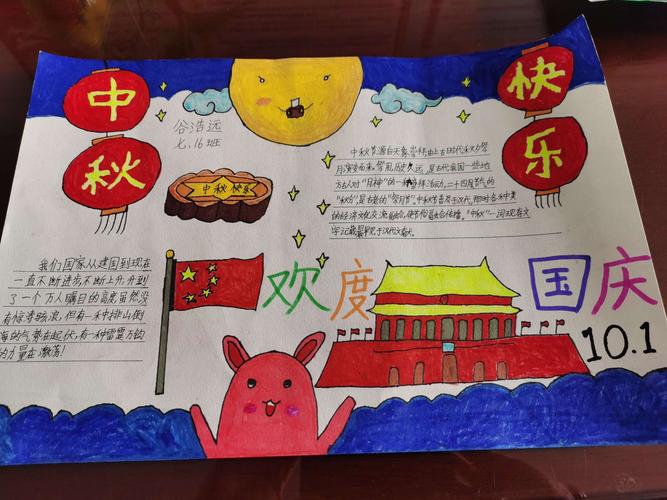 中秋
快乐
谷浩远
七、16班
中秋快乐
中秋节源自天象崇拜,由上古时代秋夕祭
月演变而来。祭月,历史久远,是古代我国一些地
方古人对“月神”的一种崇拜活动,二十四节气的
“秋分”,是古老的“祭月节”。中秋节普及于汉代,
的经济文化交流融合,使节俗融合传播。“中秋”一词现存文
字记载最早见于汉代文献。
我们国家从建国到现在
一直不断进步不断上升,升到
了一个万人瞩目的高度虽然没
有惊涛骇浪,但有一种排山倒
海的气势在起伏,有一种雷霆万钧
的力量在激荡!
欢度国庆
10.1